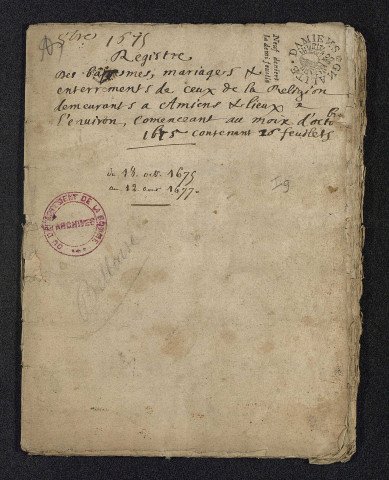 1675
Registre
Des baptesmes, mariages &
enterrements de ceux de la Religion
demeurants a Amiens & lieux
l'environ, comenceant au mois d'octob
1675 contenant 26 feuillets
du 18. oct. 1675
au 12 avr 1677.
I 9
Neuf deniers
la demi feuille
D'AMIENS
DU DEPARTEMENT DE LA SOMME
ARCHIVES